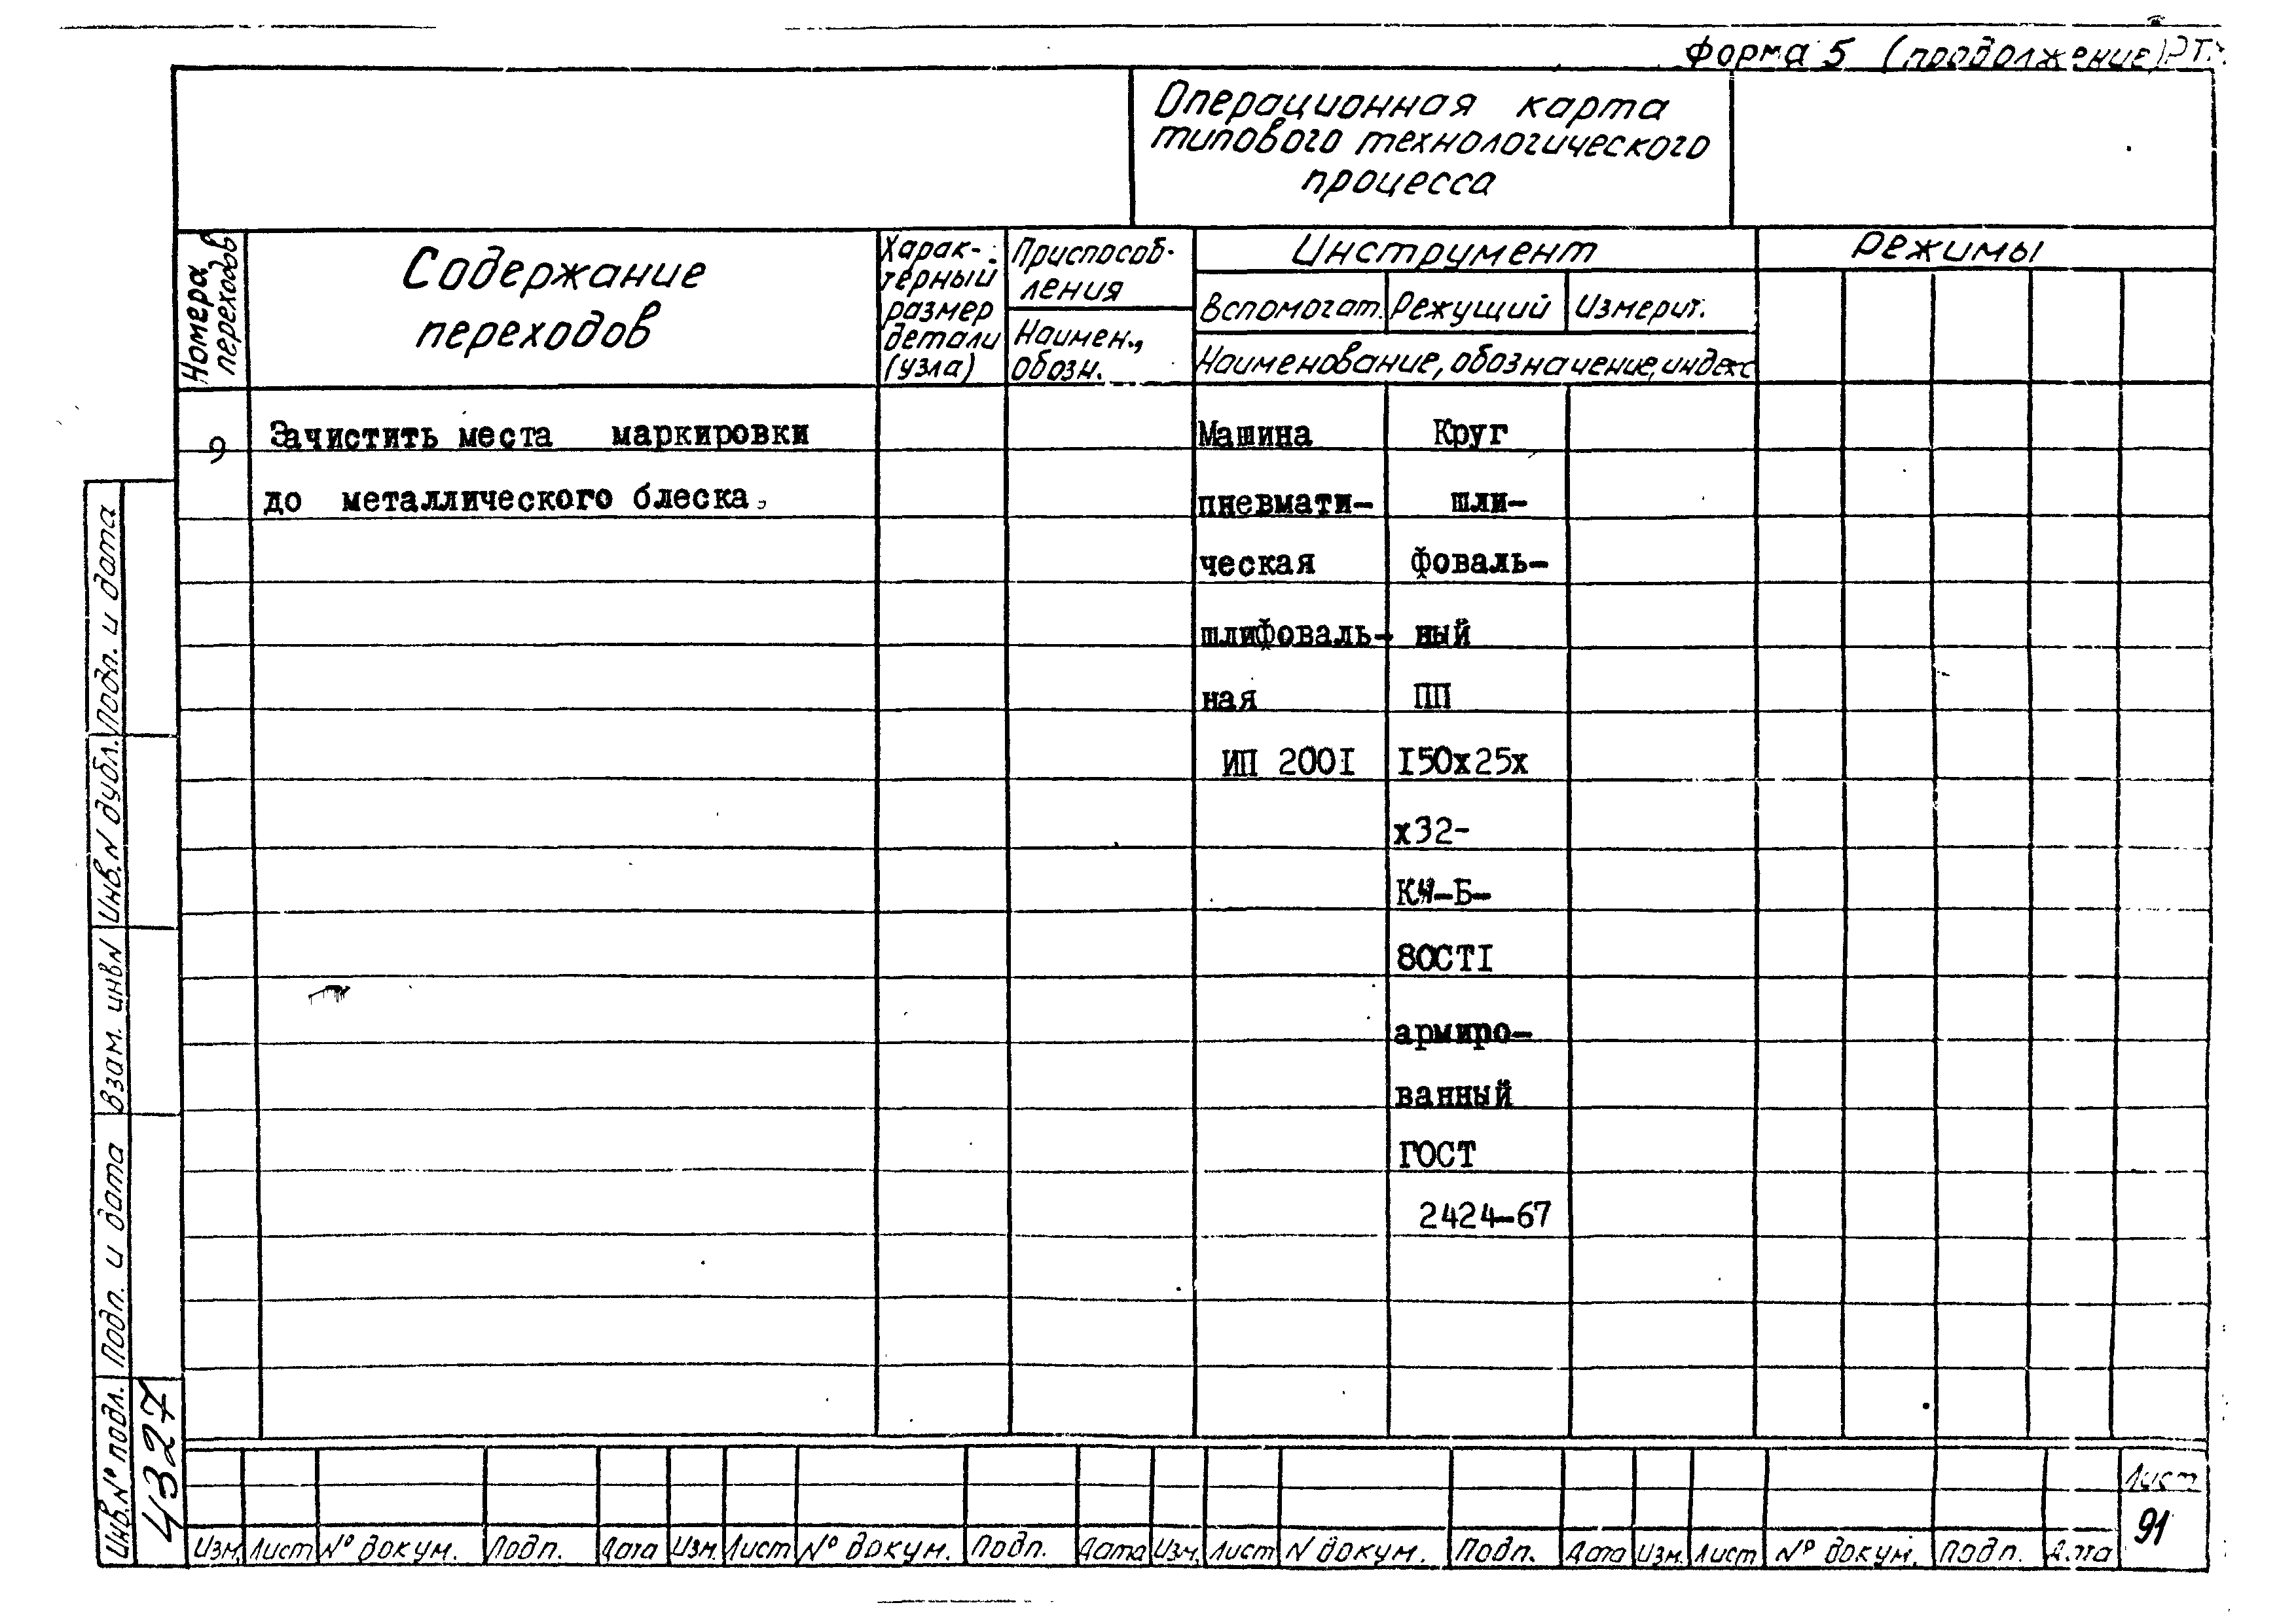 Форма 5 (продолжение) РТМ
Операционная карта
типового технологического
процесса
Номера
переходов
Содержание
переходов
Харак-
терный
размер
детали
(узла)
Приспособ-
ления
Наимен.,
обозн.
Инструмент
Вспомогат.
Режущий
Измерит.
Наименование, обозначение, индекс
Режимы
9
Зачистить места маркировки
до металлического блеска.
Машина
пневмати-
ческая
шлифоваль-
ная
ИП 200I
Круг
шли-
фоваль-
ный
ПП
I50х25х
х32-
80СТI
армиро-
ванный
ГОСТ
2424-67
Подп. и дата
Инв. N дубл.
Взам. инв N
Подп. и дата
Инв. № подл.
4327
Изм. Лист № докум. Подп. Дата Изм. Лист № докум. Подп. Дата Изм. Лист N докум. Подп. Дата Изм. Лист № докум. Подп. Дата
Лист
91